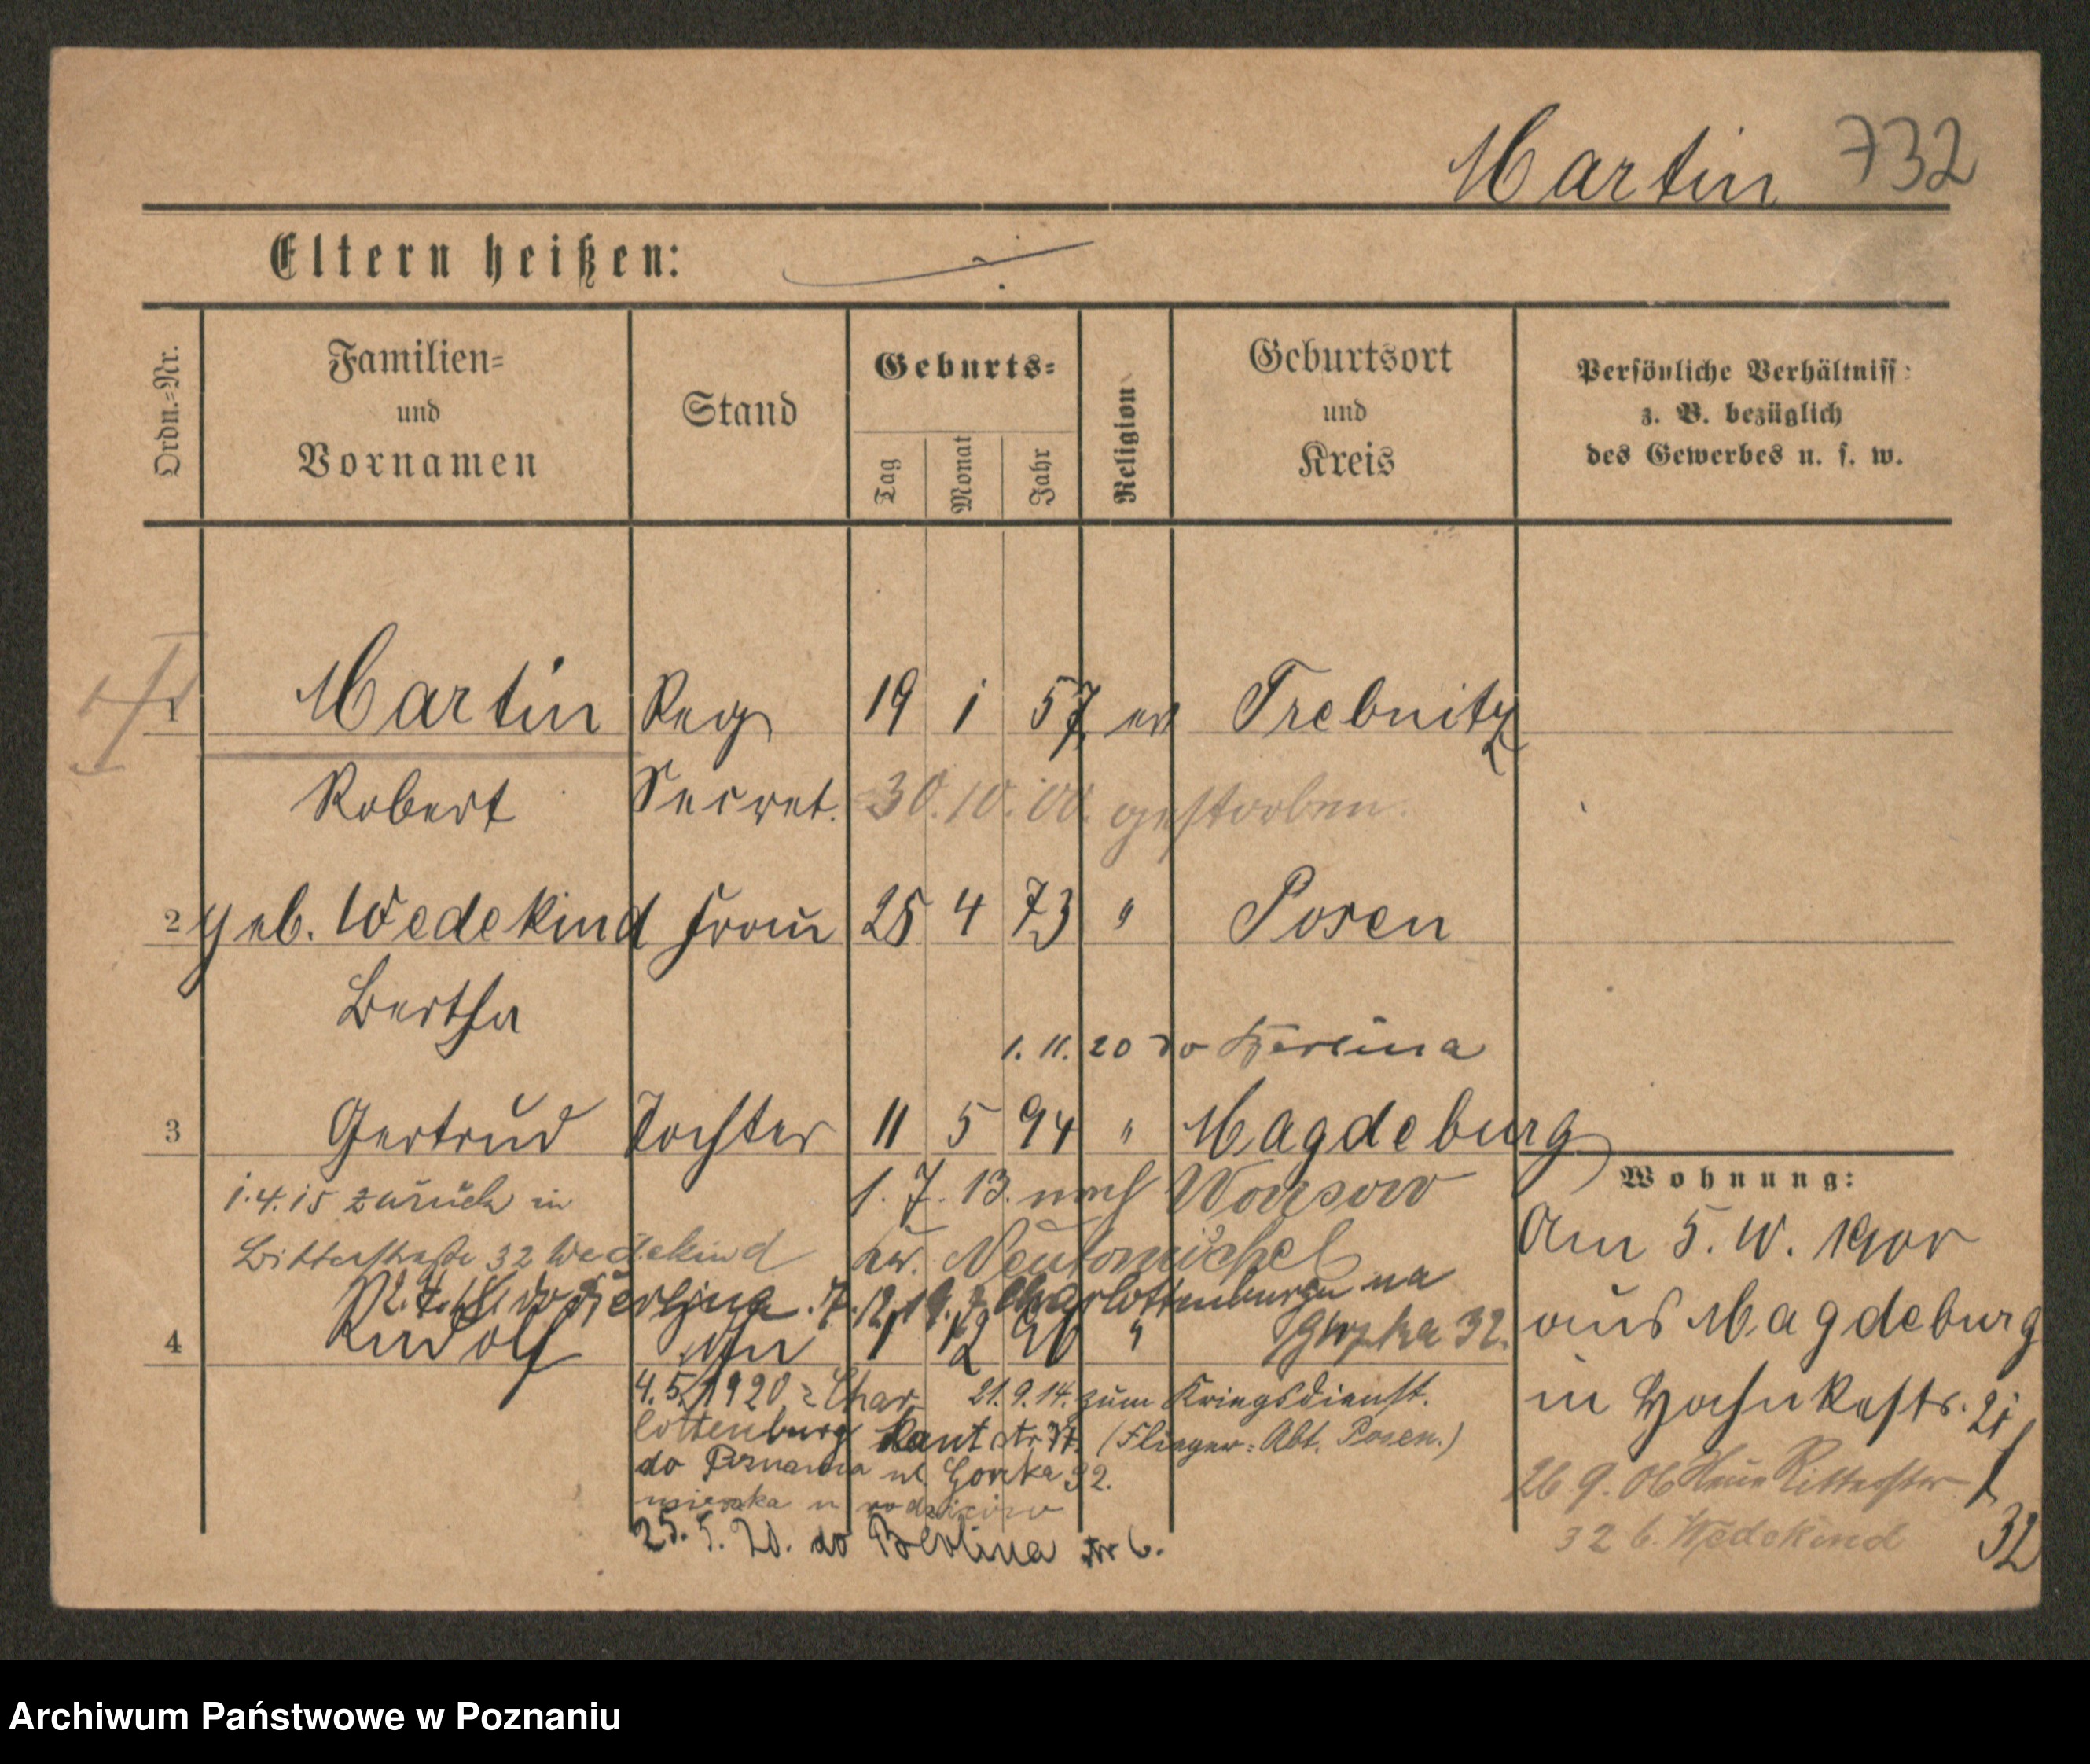 Martin 732
Eltern heißen:
Ordn.-Nr.
Familien-
und
Vornamen
Stand
Geburts-
Tag
Monat
Jahr
Religion
Geburtsort
und
Kreis
Persönliche Verhältniss
z. B. bezüglich
des Gewerbes u. s. w.
1 Martin Reg 19 1 57 ev Trebnitz
Robert Secret. 30.10.00. gestorben.
2 geb. Wedekind Frau 25 4 73 " Posen
Bertha
1. 11. 20 do Berlina
3 Gertrud Tochter 11 5 94 " Magdeburg
1.4.15 zurück in 1. 7. 13. nach Wonsowo
Ritterstraße 32 Wedekind Neutomischel
do Berlina 7.12.19. z Charlottenburgu na
4 Rudolf 1 12 96 " 32.
4.5.1920 z Char- 21.9.14. zum Kriegsdienst.
lottenburg Kant str (Flieger-Abt. Posen.)
do Poznania ul. Gorcka 32.
mieszka u rodziców
25. 5. 20. do Berlina
Wohnung:
Am 5. 1900
aus Magdeburg
in Hohnkestr. 21
26 9. 06 Ritterstr
32 b. Wedekind
32
Archiwum Państwowe w Poznaniu